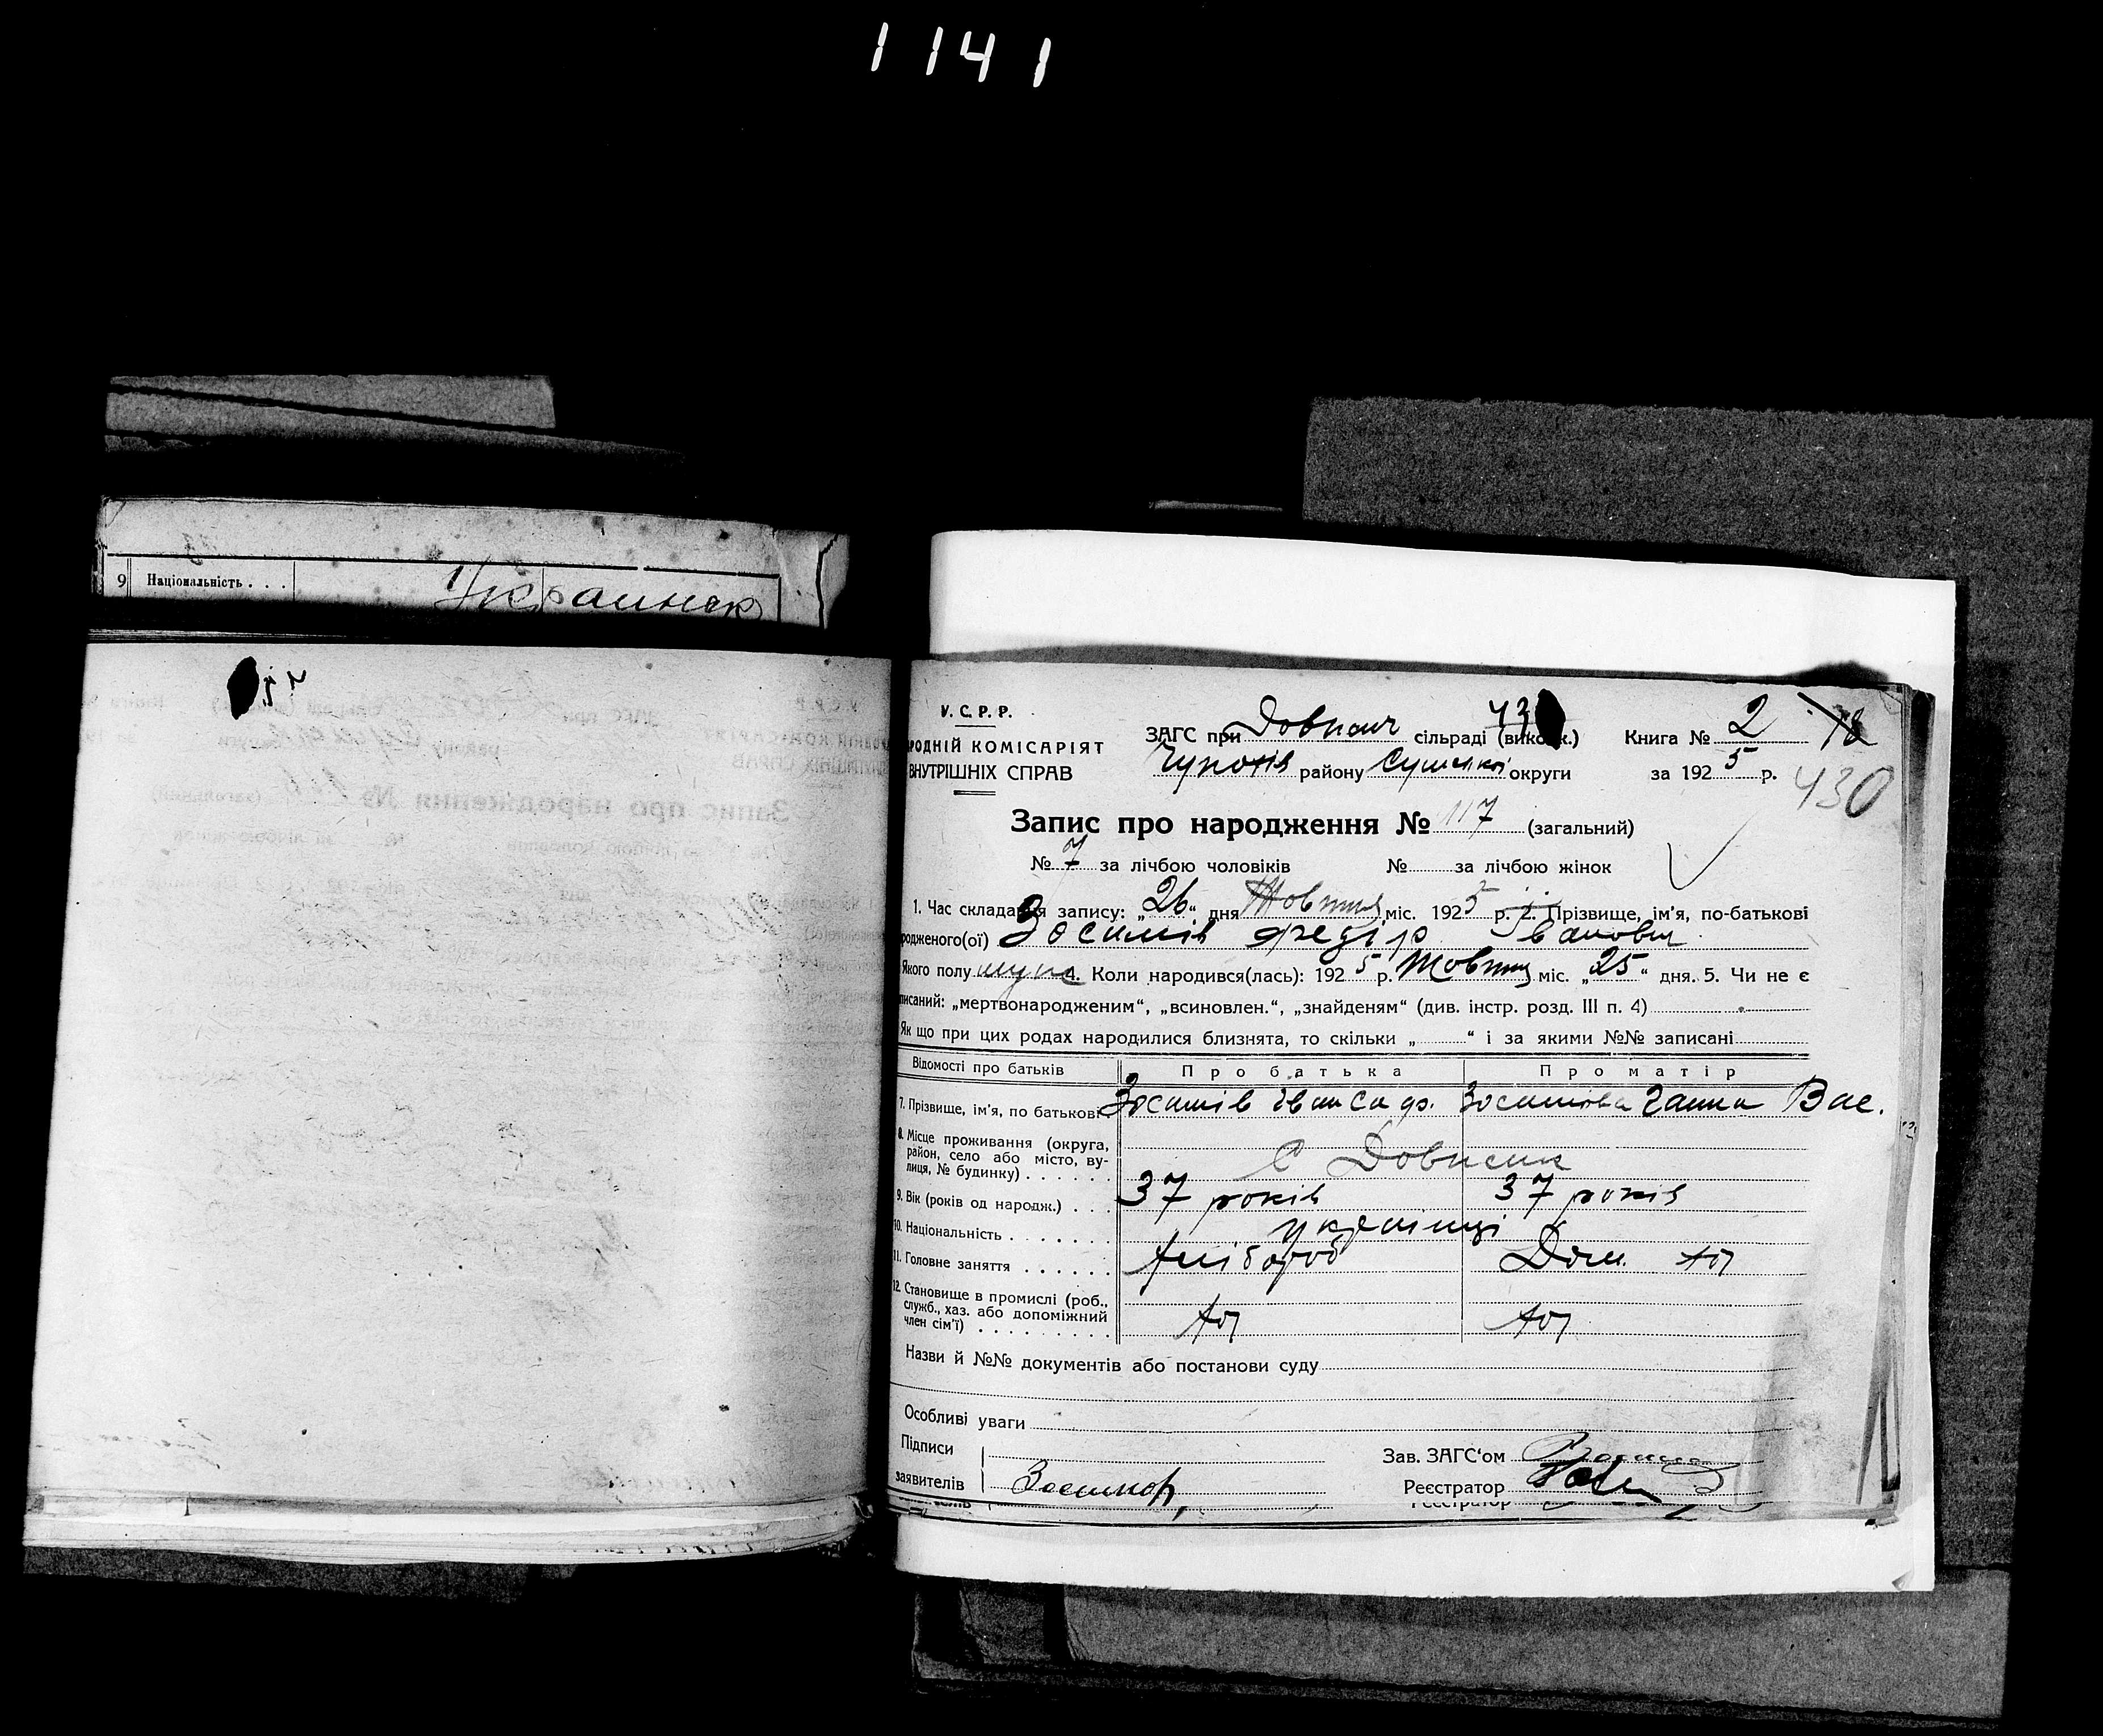 1141
9 Національність . . . Украинск
У.С.Р.Р.
РОДНІЙ КОМІСАРІЯТ
ВНУТРІШНІХ СПРАВ
ЗАГС при сільраді (викон.) Книга № 2 18
району Сумської округи за 1925 р. 430
Запис про народження № 117 (загальний)
№ 7 за лічбою чоловіків № за лічбою жінок
1. Час складання запису: „26“ дня Жовтня міс. 1925 р. 2. Прізвище, ім'я, по-батькові
родженого(ої) Зосимів Федір Іванович
Якого полу муж 4. Коли народився(лась): 1925 р. Жовтня міс. „25“ дня. 5. Чи не є
писаний: „мертвонародженим“, „всиновлен.“, „знайденям“ (див. інстр. розд. III п. 4)
Як що при цих родах народилися близнята, то скільки „ “ і за якими №№ записані
Відомості про батьків Про батька Про матір
7. Прізвище, ім'я, по батькові Зосимів Іван Сидр. Зосимова Ганна Вас.
8. Місце проживання (округа,
район, село або місто, ву-
лиця, № будинку) . . . . . . С
9. Вік (років од народж.) . . . 37 років 37 років
10. Національність . . . . . . . українці
11. Головне заняття . . . . . . Хлібороб Дом.
12. Становище в промислі (роб.,
служб., хаз. або допоміжний
член сім'ї) . . . . . . . . .
Назви й №№ документів або постанови суду
Особливі уваги
Підписи Зав. ЗАГС'ом
заявителів Реєстратор
Реєстратор